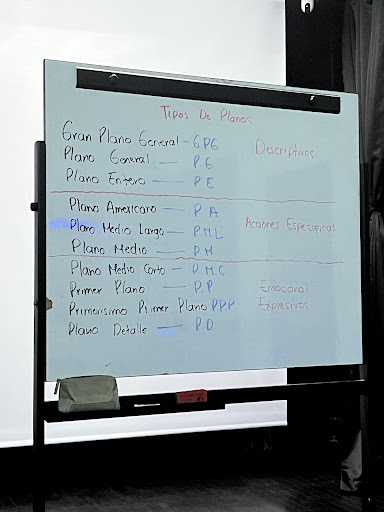 Tipos De Planos
Gran Plano General - G.P.G
Plano General — P.G
Plano Entero — P.E
Descriptivos
Plano Americano — P.A
Plano Medio Largo — P.M.L
Plano Medio — P.M
Acciones Especificas
Plano Medio Corto — P.M.C
Primer Plano — P.P
Primerisimo Primer Plano P.P.P
Plano Detalle — P.D
Emocional
Expresivos